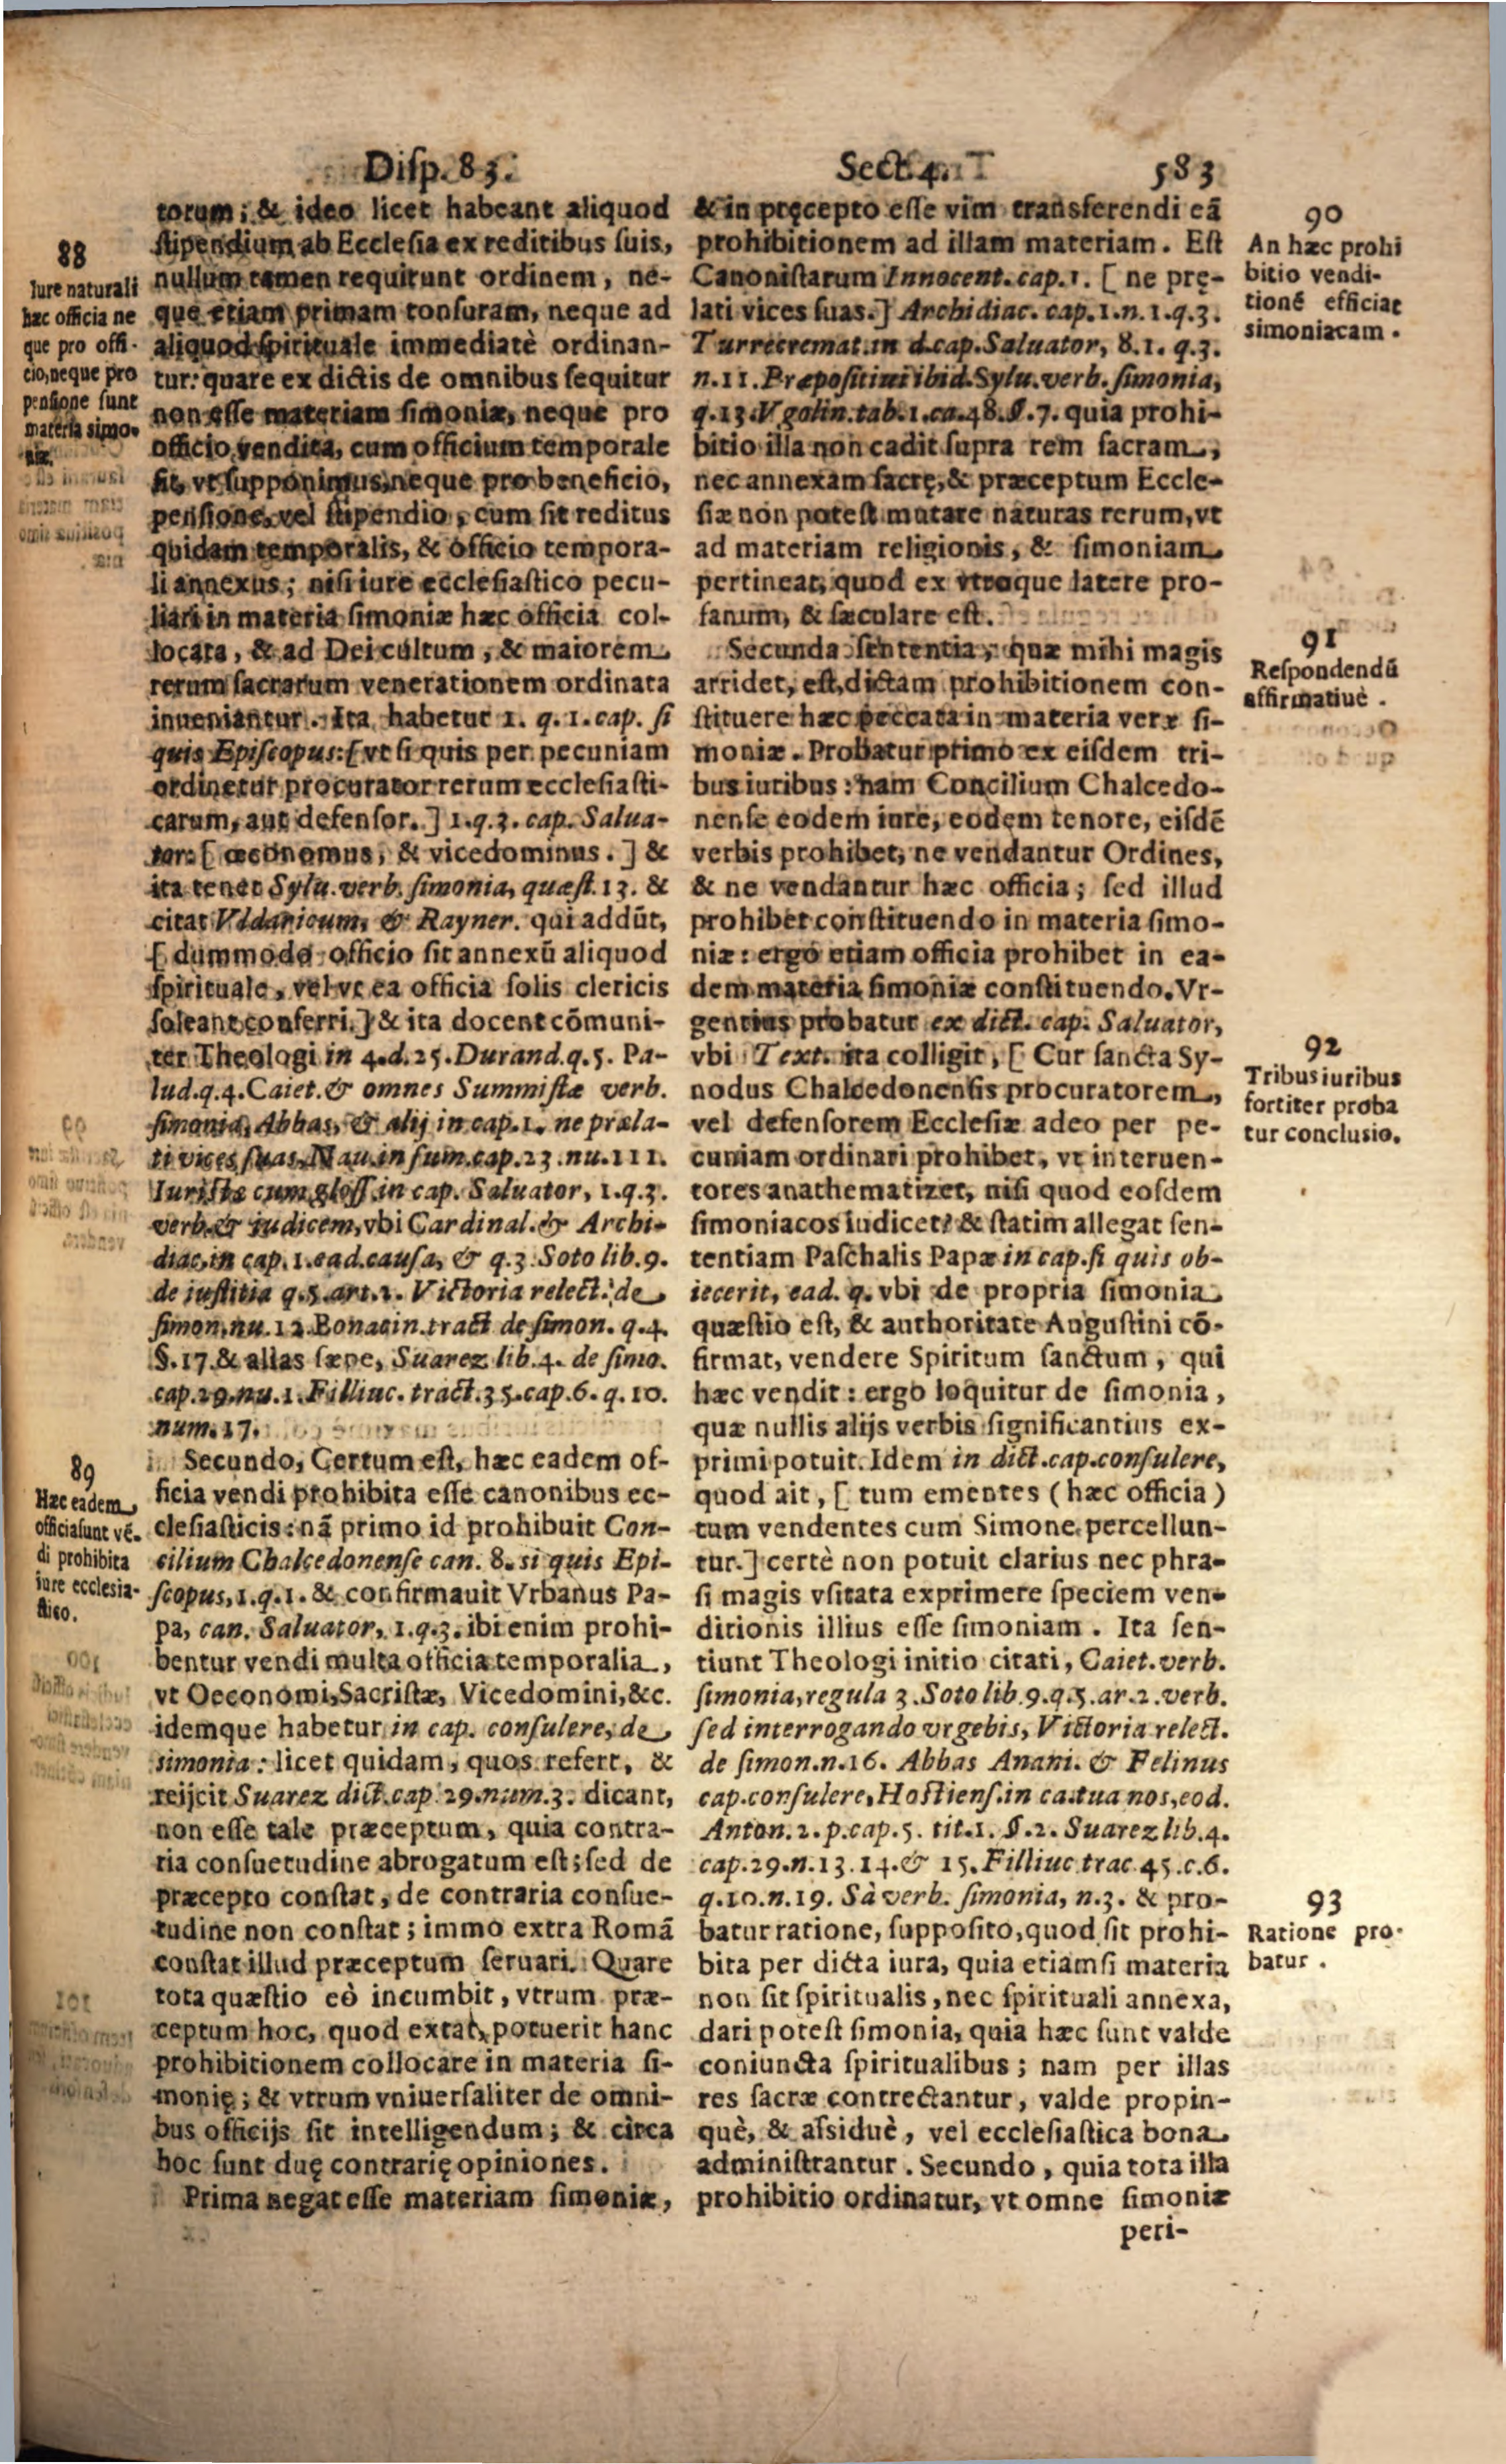 Disp. 83.
Sect. 4.
583
88
Iure naturali
hæc officia ne
que pro offi-
cio, neque pro
pensione sunt
materia simo-
niæ.
torum; & ideo licet habeant aliquod
stipendium ab Ecclesia ex reditibus suis,
nullum tamen requirunt ordinem, ne-
que etiam primam tonsuram, neque ad
aliquod spirituale immediatè ordinan-
tur: quare ex dictis de omnibus sequitur
non esse materiam simoniæ, neque pro
officio vendita, cum officium temporale
sit, vt supponimus; neque pro beneficio,
pensione, vel stipendio, cum sit reditus
quidam temporalis, & officio tempora-
li annexus; nisi iure ecclesiastico pecu-
liari in materia simoniæ hæc officia col-
locata, & ad Dei cultum, & maiorem
rerum sacrarum venerationem ordinata
inueniantur. Ita habetur 1. q. 1. cap. si
quis Episcopus: [vt si quis per pecuniam
ordinetur procurator rerum ecclesiasti-
carum, aut defensor.] 1. q. 3. cap. Salua-
tor: [œconomus, & vicedominus.] &
ita tenet Sylu. verb. simonia, quæst. 13. &
citat Vldaricum, & Rayner. qui addūt,
[dummodo officio sit annexū aliquod
spirituale, vel vt ea officia solis clericis
soleant conferri.] & ita docent cōmuni-
ter Theologi in 4. d. 25. Durand. q. 5. Pa-
lud. q. 4. Caiet. & omnes Summistæ verb.
simonia, Abbas, & alij in cap. 1. ne præla-
ti vices suas, Nau. in sum. cap. 23. nu. 111.
Iuristæ cum gloss. in cap. Saluator, 1. q. 3.
verb. & iudicem, vbi Cardinal. & Archi-
diac. in cap. 1. ead. causa, & q. 3. Soto lib. 9.
de iustitia q. 5. art. 2. Victoria relect. de
simon. nu. 12. Bonacin. tract de simon. q. 4.
§. 17. & alias sæpe, Suarez lib. 4. de simo.
cap. 29. nu. 1. Filliuc. tract. 35. cap. 6. q. 10.
num. 17.
89
Hæc eadem
officia sunt vē-
di prohibita
iure ecclesia-
stico.
Secundo, Certum est, hæc eadem of-
ficia vendi prohibita esse canonibus ec-
clesiasticis: nā primo id prohibuit Con-
cilium Chalcedonense can. 8. si quis Epi-
scopus, 1. q. 1. & confirmauit Vrbanus Pa-
pa, can. Saluator, 1. q. 3. ibi enim prohi-
bentur vendi multa officia temporalia,
vt Oeconomi, Sacristæ, Vicedomini, &c.
idemque habetur in cap. consulere, de
simonia: licet quidam, quos refert, &
reijcit Suarez dict. cap 29. num. 3. dicant,
non esse tale præceptum, quia contra-
ria consuetudine abrogatum est; sed de
præcepto constat, de contraria consue-
tudine non constat; immo extra Romā
constat illud præceptum seruari. Quare
tota quæstio eò incumbit, vtrum præ-
ceptum hoc, quod extat, potuerit hanc
prohibitionem collocare in materia si-
monię; & vtrum vniuersaliter de omni-
bus officijs sit intelligendum; & circa
hoc sunt duę contrarię opiniones.
Prima negat esse materiam simoniæ,
& in pręcepto esse vim transferendi eā
prohibitionem ad illam materiam. Est
Canonistarum Innocent. cap. 1. [ne prę-
lati vices suas.] Archidiac. cap. 1. n. 1. q. 3.
Turrecremat. in d. cap. Saluator, 8. 1. q. 3.
n. 11. Præpositini ibid. Sylu. verb. simonia,
q. 13. Vgolin. tab. 1. ca. 48. §. 7. quia prohi-
bitio illa non cadit supra rem sacram,
nec annexam sacrę, & præceptum Eccle-
siæ non potest mutare naturas rerum, vt
ad materiam religionis, & simoniam
pertineat, quod ex vtroque latere pro-
fanum, & sæculare est.
90
An hæc prohi
bitio vendi-
tionē efficiat
simoniacam.
Secunda sententia, quæ mihi magis
arridet, est, dictam prohibitionem con-
stituere hæc peccata in materia veræ si-
moniæ. Probatur primo ex eisdem tri-
bus iuribus: nam Concilium Chalcedo-
nense eodem iure, eodem tenore, eisdē
verbis prohibet, ne vendantur Ordines,
& ne vendantur hæc officia; sed illud
prohibet constituendo in materia simo-
niæ: ergo etiam officia prohibet in ea-
dem materia simoniæ constituendo. Vr-
gentius probatur ex dict. cap. Saluator,
vbi Text. ita colligit, [Cur sancta Sy-
nodus Chalcedonensis procuratorem,
vel defensorem Ecclesiæ adeo per pe-
cuniam ordinari prohibet, vt interuen-
tores anathematizet, nisi quod eosdem
simoniacos iudicet? & statim allegat sen-
tentiam Paschalis Papæ in cap. si quis ob-
iecerit, ead. q. vbi de propria simonia
quæstio est, & authoritate Augustini cō-
firmat, vendere Spiritum sanctum, qui
hæc vendit: ergo loquitur de simonia,
quæ nullis alijs verbis significantius ex-
primi potuit. Idem in dict. cap. consulere,
quod ait, [tum ementes (hæc officia)
tum vendentes cum Simone percellun-
tur.] certè non potuit clarius nec phra-
si magis vsitata exprimere speciem ven-
ditionis illius esse simoniam. Ita sen-
tiunt Theologi initio citati, Caiet. verb.
simonia, regula 3. Soto lib. 9. q. 5. ar. 2. verb.
sed interrogando vrgebis, Victoria relect.
de simon. n. 16. Abbas Anani. & Felinus
cap. consulere, Hostiens. in ca. tua nos, eod.
Anton. 2. p. cap. 5. tit. 1. §. 2. Suarez lib. 4.
cap. 29. n. 13. 14. & 15. Filliuc trac. 45. c. 6.
q. 10. n. 19. Sà verb. simonia, n. 3. & pro-
batur ratione, supposito, quod sit prohi-
bita per dicta iura, quia etiamsi materia
non sit spiritualis, nec spirituali annexa,
dari potest simonia, quia hæc sunt valde
coniuncta spiritualibus; nam per illas
res sacræ contrectantur, valde propin-
què, & assiduè, vel ecclesiastica bona
administrantur. Secundo, quia tota illa
prohibitio ordinatur, vt omne simoniæ
peri-
91
Respondendū
affirmatiuè.
92
Tribus iuribus
fortiter proba
tur conclusio.
93
Ratione pro-
batur.